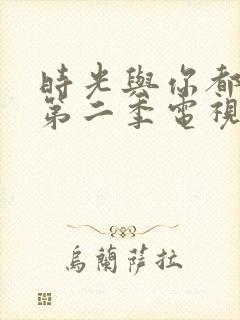 時光與你都
第二季電視
烏蘭薩拉